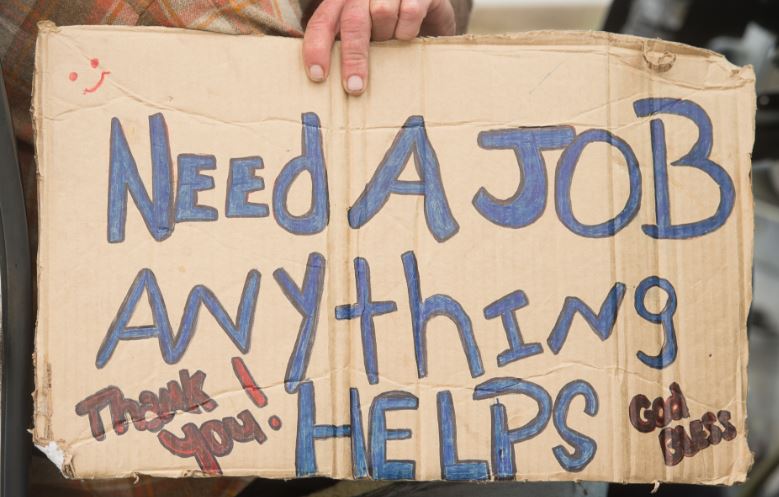 NEEd A JOB
ANYthING
HELPS
Thank
you!
God
BLESS